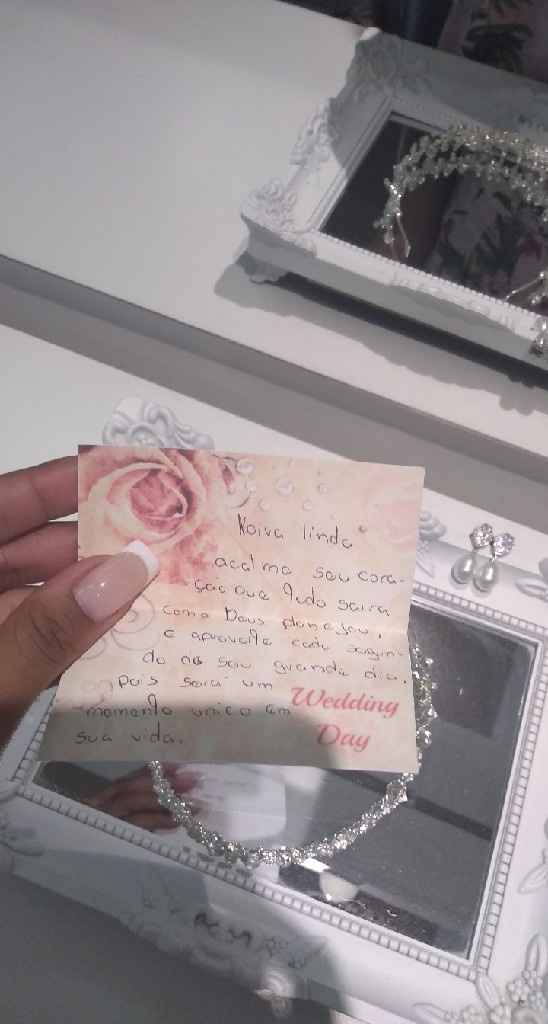 Noiva linda
acalma seu cora-
ção que tudo saíra
como Deus planejou,
e aproveite cada segun-
do no seu grande dia.
pois será um
momento único em
sua vida.
Wedding
Day